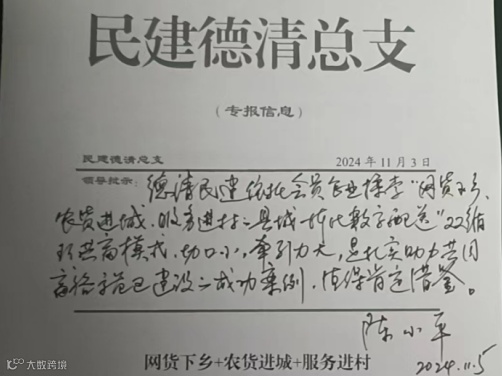 民建德清总支
（专报信息）
民建德清总支 2024年11月3日
领导批示：德清民建依托会员企业探索“网货下乡、
农货进城、服务进村”县域一体化数字配送“22循
环共富模式，切口小，牵引力大，是扎实助力共同
富裕示范区建设的成功案例，值得肯定借鉴。
陈小平
2024.11.5
网货下乡+农货进城+服务进村
大数跨境